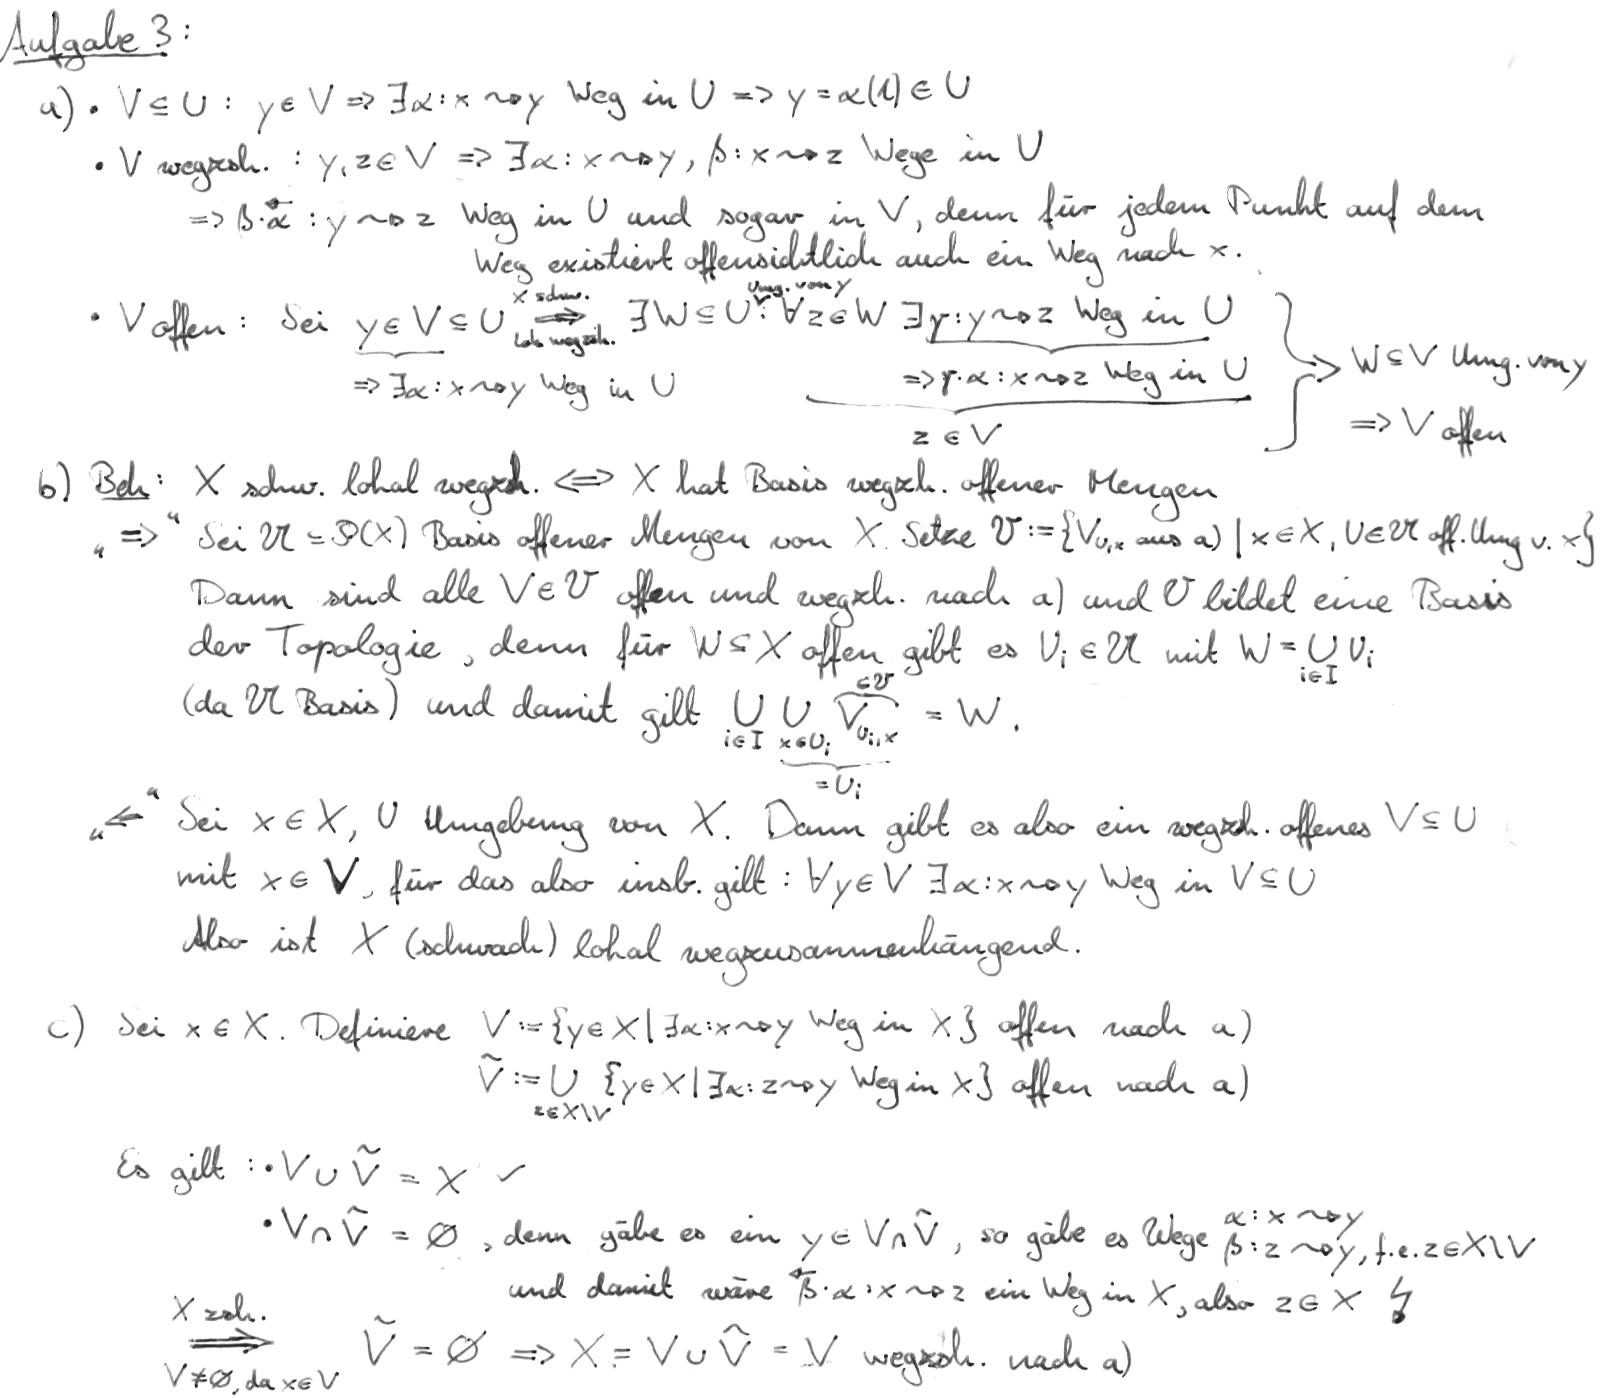 Aufgabe 3:
a) • V ⊆ U : y ∈ V => ∃α: x ⇝ y Weg in U => y = α(1) ∈ U
• V wegzsh. : y, z ∈ V => ∃α: x ⇝ y, β: x ⇝ z Wege in U
=> β·α⃖ : y ⇝ z Weg in U und sogar in V, denn für jedem Punkt auf dem
Weg existiert offensichtlich auch ein Weg nach x.
• V offen: Sei y ∈ V ⊆ U ⟹ (X schw. lok. wegzsh.) ∃ W ⊆ U Umg. von y : ∀ z ∈ W ∃ γ: y ⇝ z Weg in U
=> ∃α: x ⇝ y Weg in U => γ·α: x ⇝ z Weg in U => W ⊆ V Umg. von y
z ∈ V => V offen
b) Beh: X schw. lokal wegzsh. <=> X hat Basis wegzsh. offener Mengen
„=>“ Sei 𝔘 ⊆ 𝒫(X) Basis offener Mengen von X. Setze 𝔙 := {V_{U,x} aus a) | x ∈ X, U ∈ 𝔘 off. Umg v. x}
Dann sind alle V ∈ 𝔙 offen und wegzsh. nach a) und 𝔙 bildet eine Basis
der Topologie, denn für W ⊆ X offen gibt es U_i ∈ 𝔘 mit W = ⋃_{i∈I} U_i
(da 𝔘 Basis) und damit gilt ⋃_{i∈I} ⋃_{x∈U_i} V_{U_i,x} = W.
∈ 𝔙
= U_i
„<=“ Sei x ∈ X, U Umgebung von X. Dann gibt es also ein wegzsh. offenes V ⊆ U
mit x ∈ V, für das also insb. gilt: ∀ y ∈ V ∃α: x ⇝ y Weg in V ⊆ U
Also ist X (schwach) lokal wegzusammenhängend.
c) Sei x ∈ X. Definiere V := {y ∈ X | ∃α: x ⇝ y Weg in X} offen nach a)
Ṽ := ⋃_{z∈X\V} {y ∈ X | ∃α: z ⇝ y Weg in X} offen nach a)
Es gilt : • V ∪ Ṽ = X ✓
• V ∩ Ṽ = ∅, denn gäbe es ein y ∈ V ∩ Ṽ, so gäbe es Wege α: x ⇝ y
β: z ⇝ y, f.e. z ∈ X\V
und damit wäre β⃖·α: x ⇝ z ein Weg in X, also z ∈ X ↯
X zsh.
⟹ Ṽ = ∅ => X = V ∪ Ṽ = V wegzsh. nach a)
V ≠ ∅, da x ∈ V